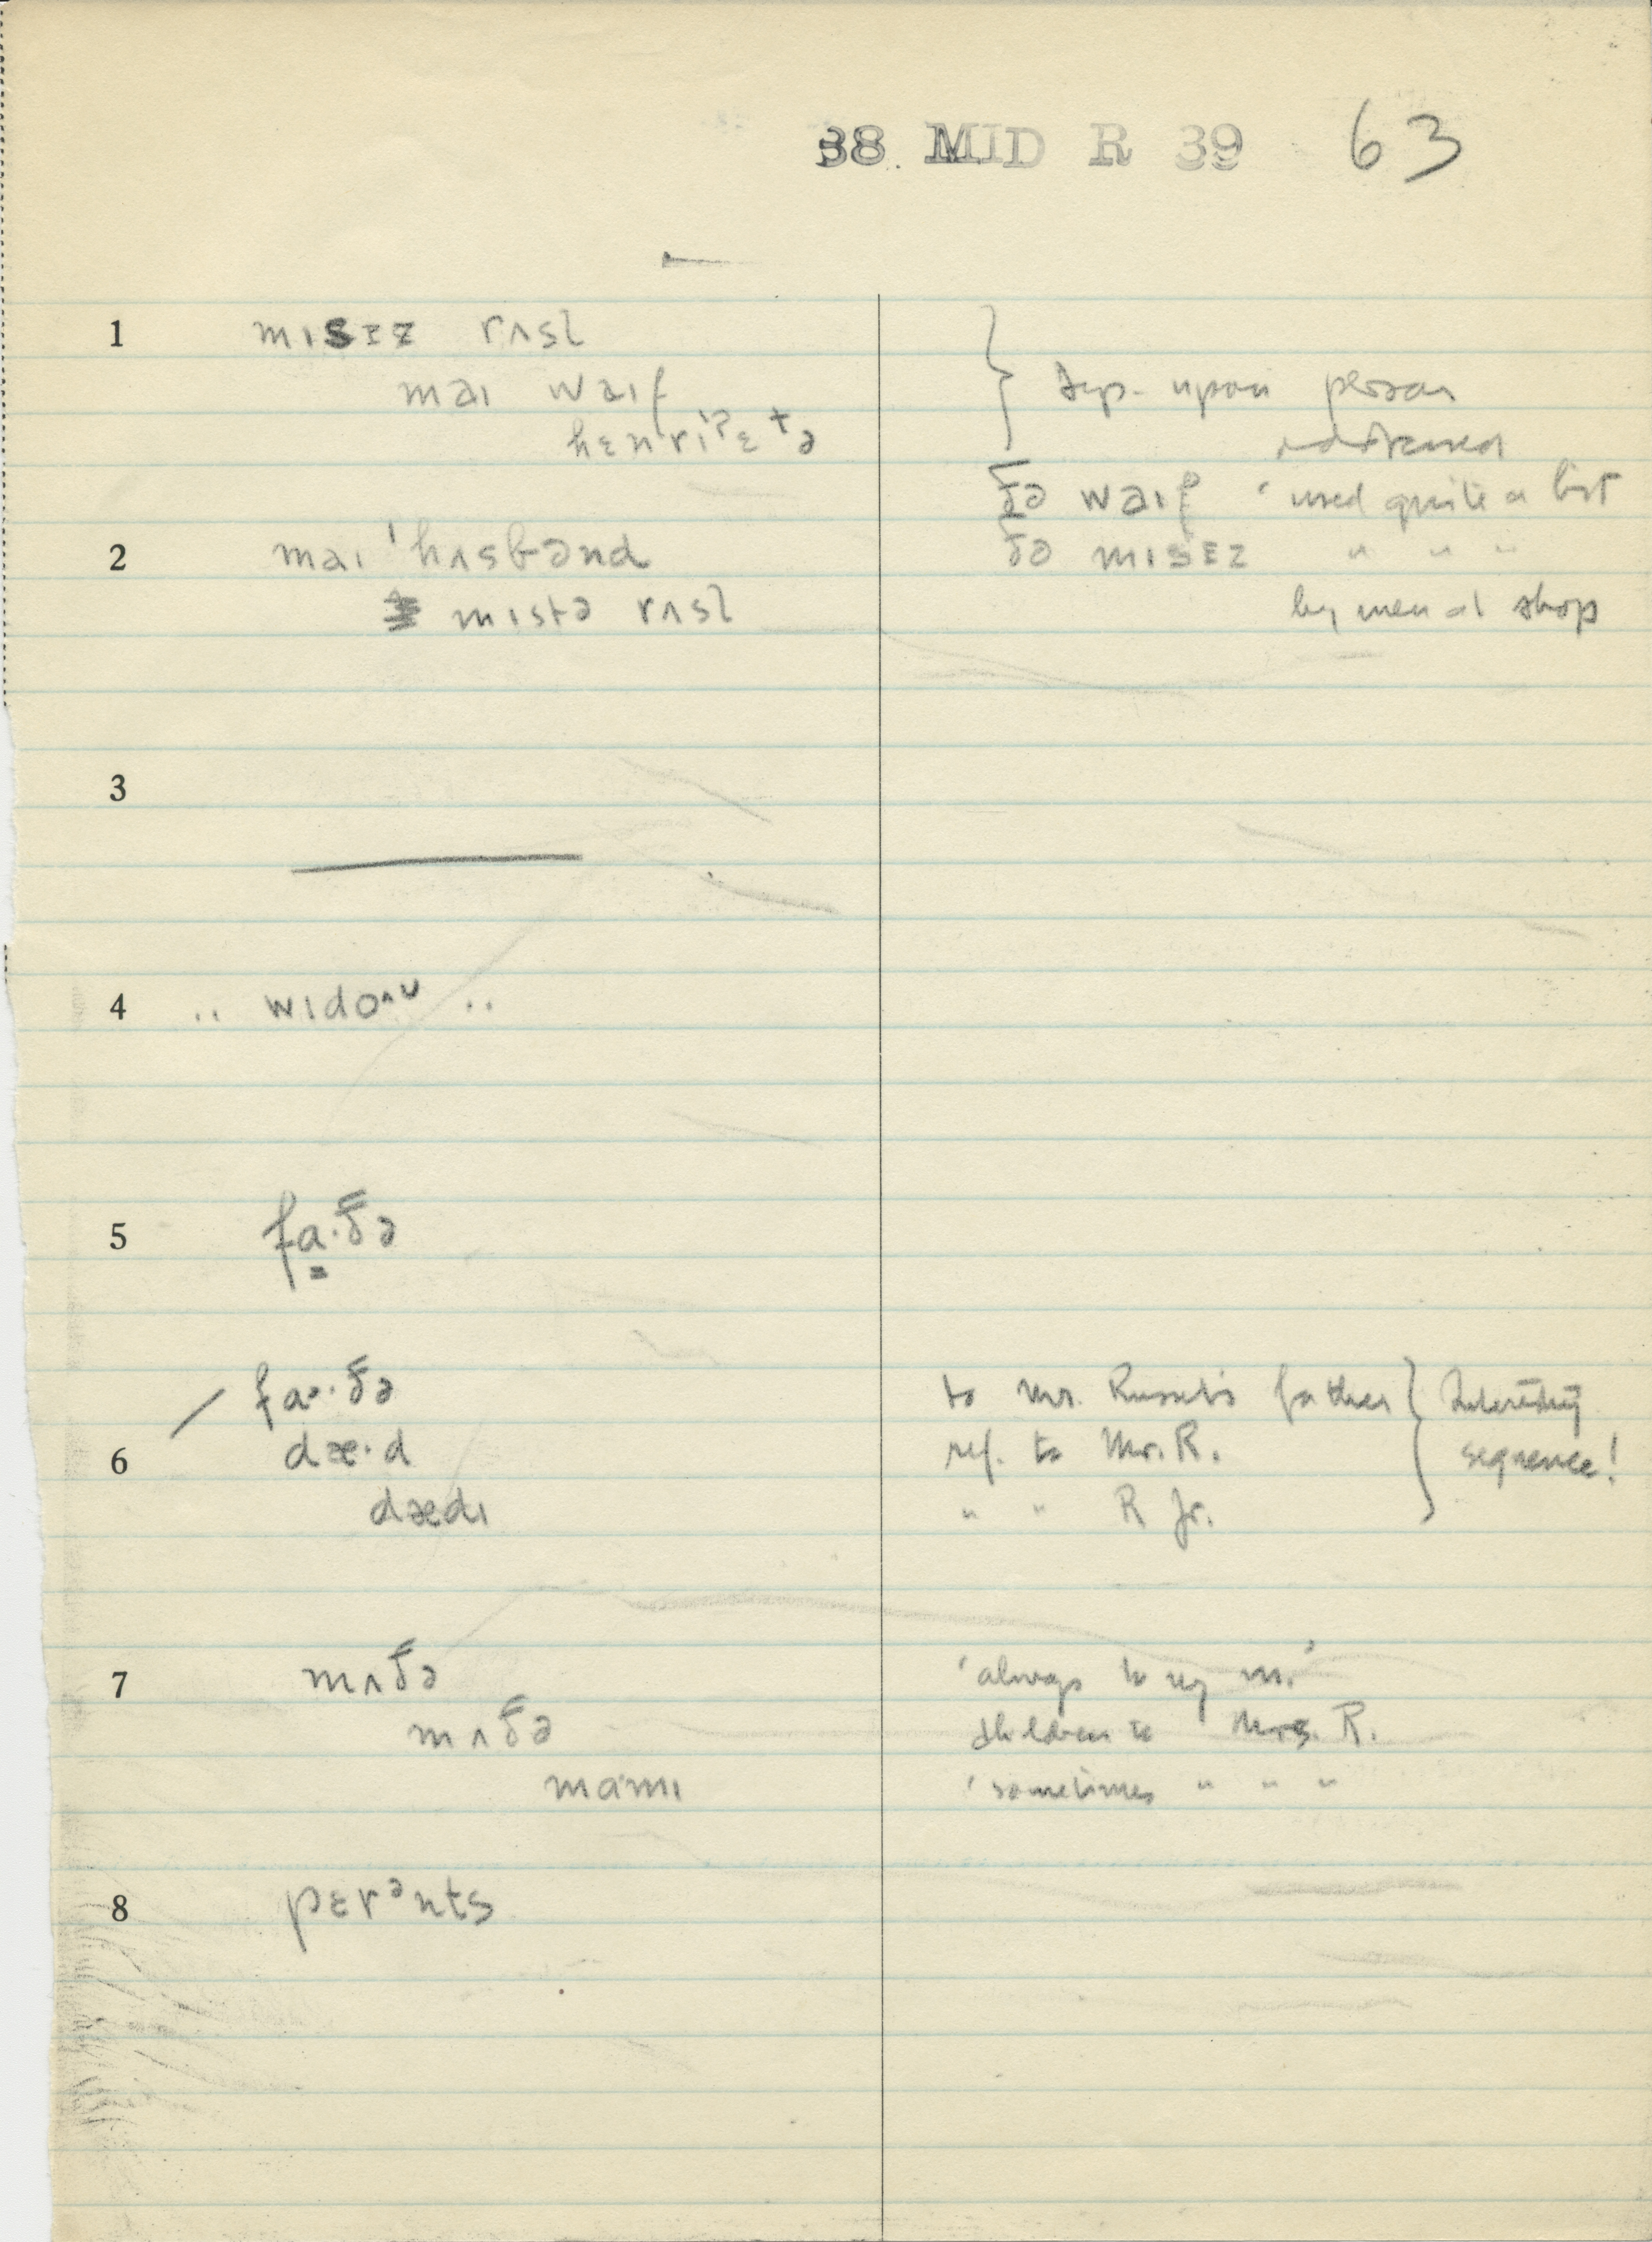 38. MID R 39 63
1 mɪsɪz rʌsl̩
maɪ waɪf
hɛnriˀɛtə
} dep. upon person
addressed
ðə waɪf 'used quite a bit
2 maɪ ˈhʌsbənd
ðə mɪsɪz " " "
mɪstə rʌsl̩
by men at shop
3
4 .. wɪdo^ʊ ..
5 fa·ðə
6 fa·ðə to Mr. Russell's father } Interesting
dæ·d ref. to Mr. R. sequence!
dædɪ " " R Jr.
7 mʌðə 'always to my m.'
mʌðə children to Mrs. R.
mamɪ 'sometimes " " "
8 pɛrᵊnts